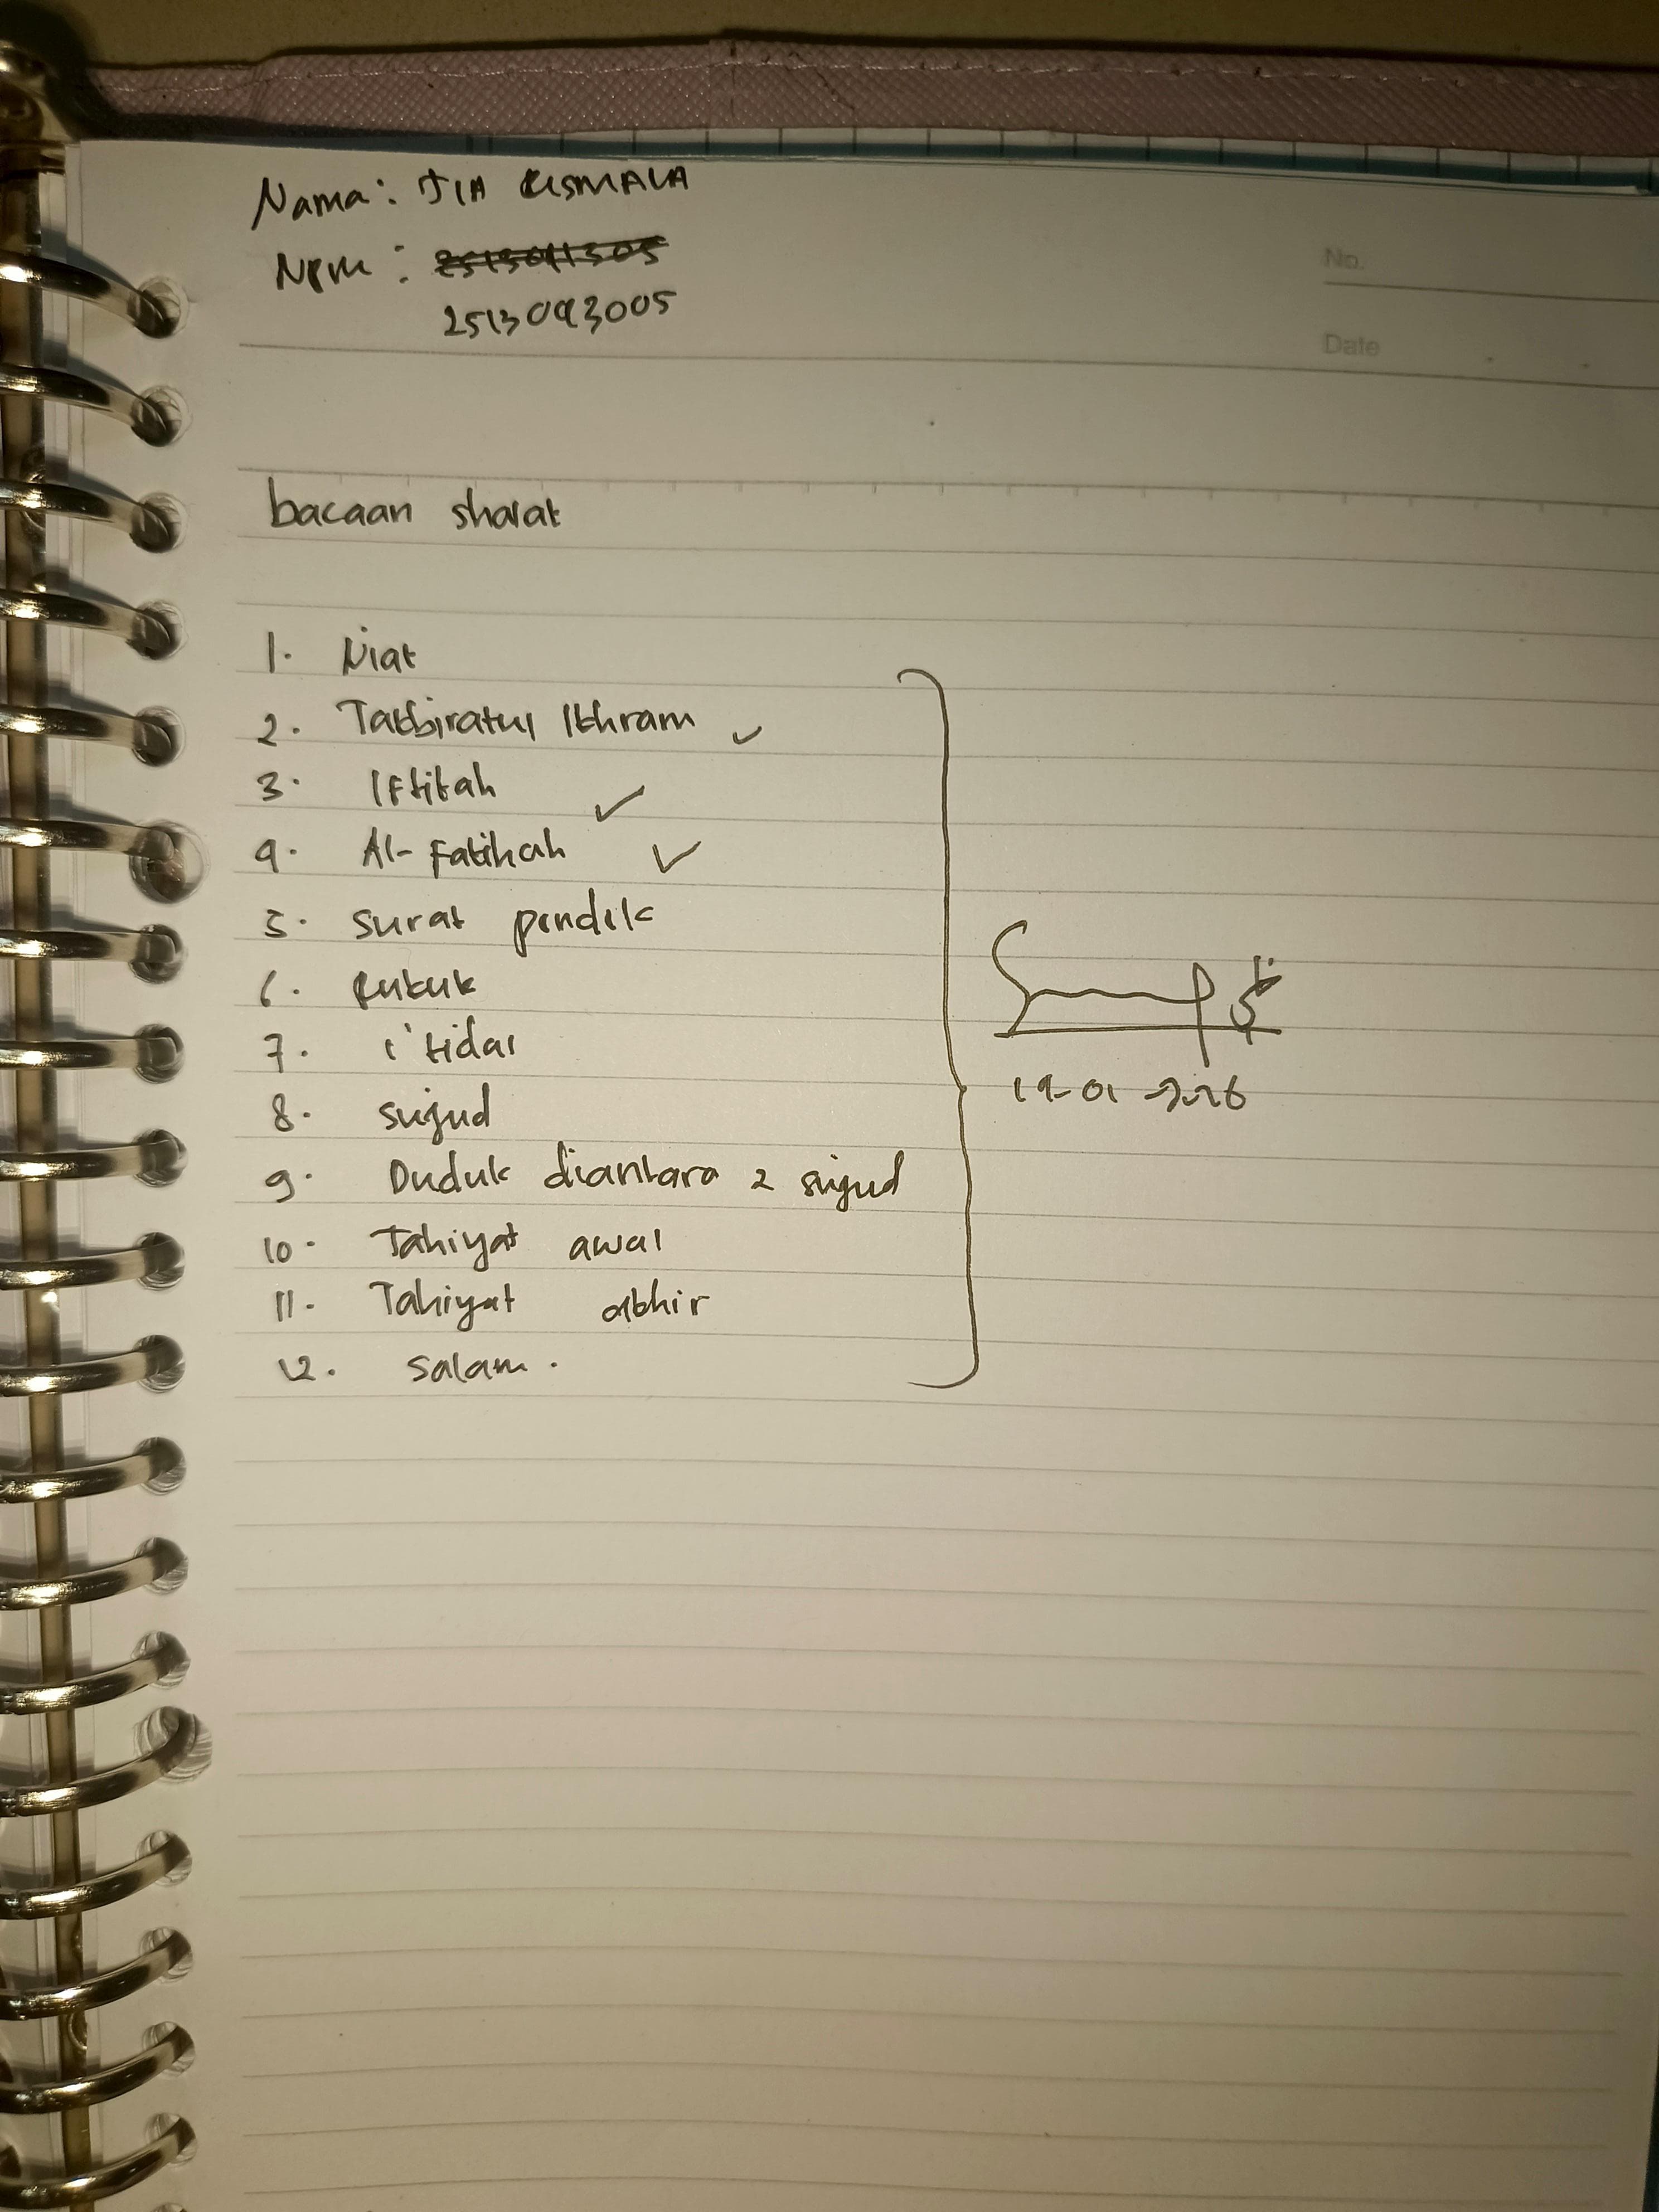 Nama : TIA RISMALA
No.
Npm : 2513041305
2513043005
Date
bacaan sholat
1. Niat
2. Takbiratul Ikhram ✓
3. Iftitah ✓
4. Al-Fatihah ✓
5. surat pendek
6. Rukuk
7. i'tidal
8. sujud
9. Duduk diantara 2 sujud
10. Tahiyat awal
11. Tahiyat akhir
12. Salam.
19-01-2026